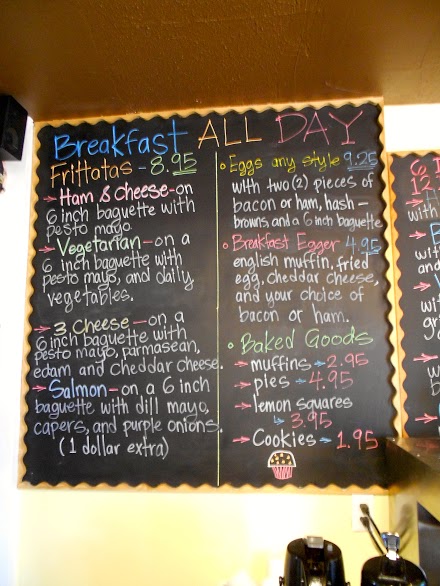 Breakfast ALL DAY
Frittatas - 8.95
→ Ham & cheese - on
6 inch baguette with
pesto mayo.
→ Vegetarian - on a
6 inch baguette with
pesto mayo, and daily
vegetables.
→ 3 Cheese - on a
6 inch baguette with
pesto mayo, parmasean,
edam and cheddar cheese.
→ Salmon - on a 6 inch
baguette with dill mayo,
capers, and purple onions.
(1 dollar extra)
• Eggs any style 9.25
with two (2) pieces of
bacon or ham, hash-
browns, and a 6 inch baguette
• Breakfast Egger 4.95
english muffin, fried
egg, cheddar cheese,
and your choice of
bacon or ham.
• Baked Goods
→ muffins → 2.95
→ pies → 4.95
→ lemon squares
↳ 3.95
→ Cookies → 1.95
6 I
12
with